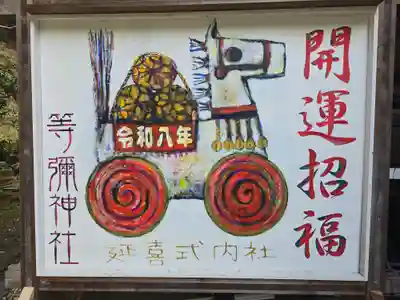 開運招福
令和八年
等彌神社
延喜式内社